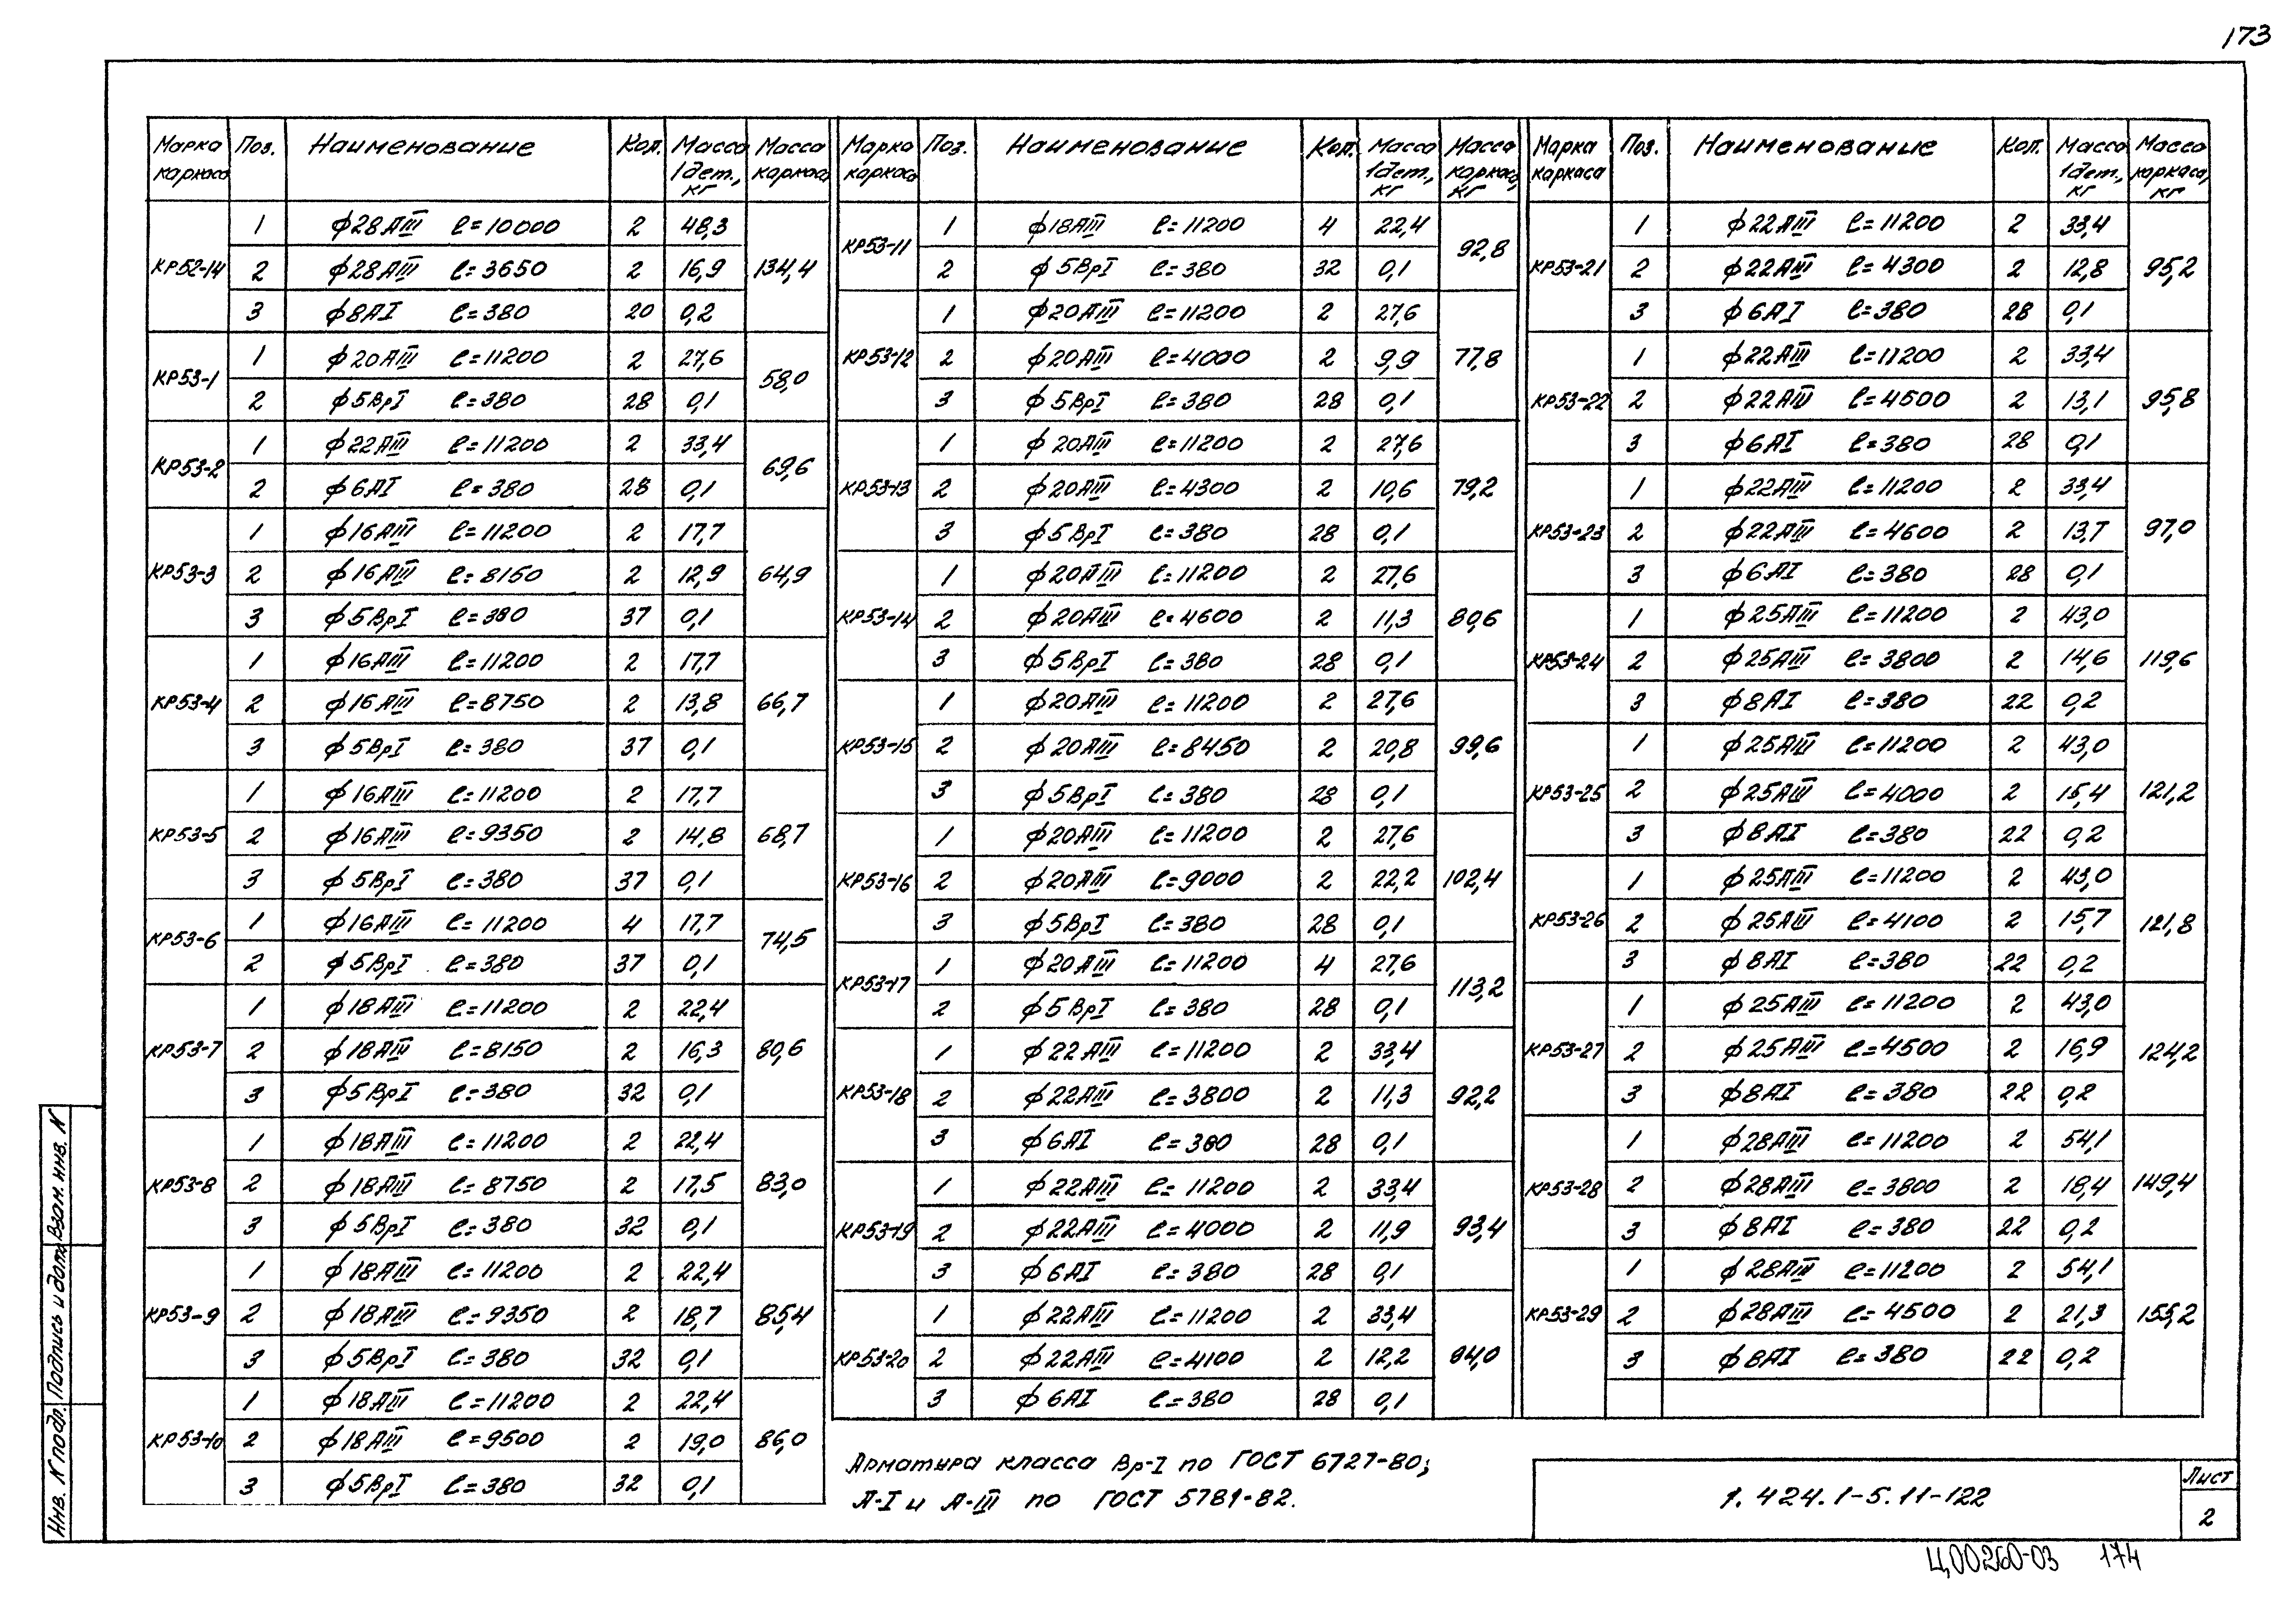 173
Марка каркаса Поз. Наименование Кол. Масса 1дет., кг Масса каркаса
КР52-14
1 ϕ28АIII ℓ=10000 2 48,3
2 ϕ28АIII ℓ=3650 2 16,9 134,4
3 ϕ8АI ℓ=380 20 0,2
КР53-1
1 ϕ20АIII ℓ=11200 2 27,6 58,0
2 ϕ5ВрI ℓ=380 28 0,1
КР53-2
1 ϕ22АIII ℓ=11200 2 33,4 69,6
2 ϕ6АI ℓ=380 28 0,1
КР53-3
1 ϕ16АIII ℓ=11200 2 17,7
2 ϕ16АIII ℓ=8150 2 12,9 64,9
3 ϕ5ВрI ℓ=380 37 0,1
КР53-4
1 ϕ16АIII ℓ=11200 2 17,7
2 ϕ16АIII ℓ=8750 2 13,8 66,7
3 ϕ5ВрI ℓ=380 37 0,1
КР53-5
1 ϕ16АIII ℓ=11200 2 17,7
2 ϕ16АIII ℓ=9350 2 14,8 68,7
3 ϕ5ВрI ℓ=380 37 0,1
КР53-6
1 ϕ16АIII ℓ=11200 4 17,7 74,5
2 ϕ5ВрI ℓ=380 37 0,1
КР53-7
1 ϕ18АIII ℓ=11200 2 22,4
2 ϕ18АIII ℓ=8150 2 16,3 80,6
3 ϕ5ВрI ℓ=380 32 0,1
КР53-8
1 ϕ18АIII ℓ=11200 2 22,4
2 ϕ18АIII ℓ=8750 2 17,5 83,0
3 ϕ5ВрI ℓ=380 32 0,1
КР53-9
1 ϕ18АIII ℓ=11200 2 22,4
2 ϕ18АIII ℓ=9350 2 18,7 85,4
3 ϕ5ВрI ℓ=380 32 0,1
КР53-10
1 ϕ18АIII ℓ=11200 2 22,4
2 ϕ18АIII ℓ=9500 2 19,0 86,0
3 ϕ5ВрI ℓ=380 32 0,1
Марка каркаса Поз. Наименование Кол. Масса 1дет., кг Масса каркаса, кг
КР53-11
1 ϕ18АIII ℓ=11200 4 22,4 92,8
2 ϕ5ВрI ℓ=380 32 0,1
КР53-12
1 ϕ20АIII ℓ=11200 2 27,6
2 ϕ20АIII ℓ=4000 2 9,9 77,8
3 ϕ5ВрI ℓ=380 28 0,1
КР53-13
1 ϕ20АIII ℓ=11200 2 27,6
2 ϕ20АIII ℓ=4300 2 10,6 79,2
3 ϕ5ВрI ℓ=380 28 0,1
КР53-14
1 ϕ20АIII ℓ=11200 2 27,6
2 ϕ20АIII ℓ=4600 2 11,3 80,6
3 ϕ5ВрI ℓ=380 28 0,1
КР53-15
1 ϕ20АIII ℓ=11200 2 27,6
2 ϕ20АIII ℓ=8450 2 20,8 99,6
3 ϕ5ВрI ℓ=380 28 0,1
КР53-16
1 ϕ20АIII ℓ=11200 2 27,6
2 ϕ20АIII ℓ=9000 2 22,2 102,4
3 ϕ5ВрI ℓ=380 28 0,1
КР53-17
1 ϕ20АIII ℓ=11200 4 27,6 113,2
2 ϕ5ВрI ℓ=380 28 0,1
КР53-18
1 ϕ22АIII ℓ=11200 2 33,4
2 ϕ22АIII ℓ=3800 2 11,3 92,2
3 ϕ6АI ℓ=380 28 0,1
КР53-19
1 ϕ22АIII ℓ=11200 2 33,4
2 ϕ22АIII ℓ=4000 2 11,9 93,4
3 ϕ6АI ℓ=380 28 0,1
КР53-20
1 ϕ22АIII ℓ=11200 2 33,4
2 ϕ22АIII ℓ=4100 2 12,2 94,0
3 ϕ6АI ℓ=380 28 0,1
Марка каркаса Поз. Наименование Кол. Масса 1дет., кг Масса каркаса, кг
КР53-21
1 ϕ22АIII ℓ=11200 2 33,4
2 ϕ22АIII ℓ=4300 2 12,8 95,2
3 ϕ6АI ℓ=380 28 0,1
КР53-22
1 ϕ22АIII ℓ=11200 2 33,4
2 ϕ22АIII ℓ=4500 2 13,1 95,8
3 ϕ6АI ℓ=380 28 0,1
КР53-23
1 ϕ22АIII ℓ=11200 2 33,4
2 ϕ22АIII ℓ=4600 2 13,7 97,0
3 ϕ6АI ℓ=380 28 0,1
КР53-24
1 ϕ25АIII ℓ=11200 2 43,0
2 ϕ25АIII ℓ=3800 2 14,6 119,6
3 ϕ8АI ℓ=380 22 0,2
КР53-25
1 ϕ25АIII ℓ=11200 2 43,0
2 ϕ25АIII ℓ=4000 2 15,4 121,2
3 ϕ8АI ℓ=380 22 0,2
КР53-26
1 ϕ25АIII ℓ=11200 2 43,0
2 ϕ25АIII ℓ=4100 2 15,7 121,8
3 ϕ8АI ℓ=380 22 0,2
КР53-27
1 ϕ25АIII ℓ=11200 2 43,0
2 ϕ25АIII ℓ=4500 2 16,9 124,2
3 ϕ8АI ℓ=380 22 0,2
КР53-28
1 ϕ28АIII ℓ=11200 2 54,1
2 ϕ28АIII ℓ=3800 2 18,4 149,4
3 ϕ8АI ℓ=380 22 0,2
КР53-29
1 ϕ28АIII ℓ=11200 2 54,1
2 ϕ28АIII ℓ=4500 2 21,3 155,2
3 ϕ8АI ℓ=380 22 0,2
Арматура класса Вр-I по ГОСТ 6727-80;
А-I и А-III по ГОСТ 5781-82.
1.424.1-5.11-122
Лист
2
Ц00260-03 174
Инв. N подл. Подпись и дата Взам. инв. N